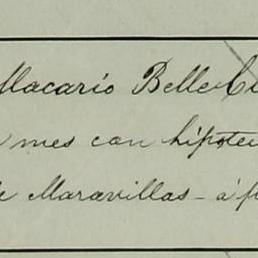 Macario Belle
mes con hipote
Maravillas - á